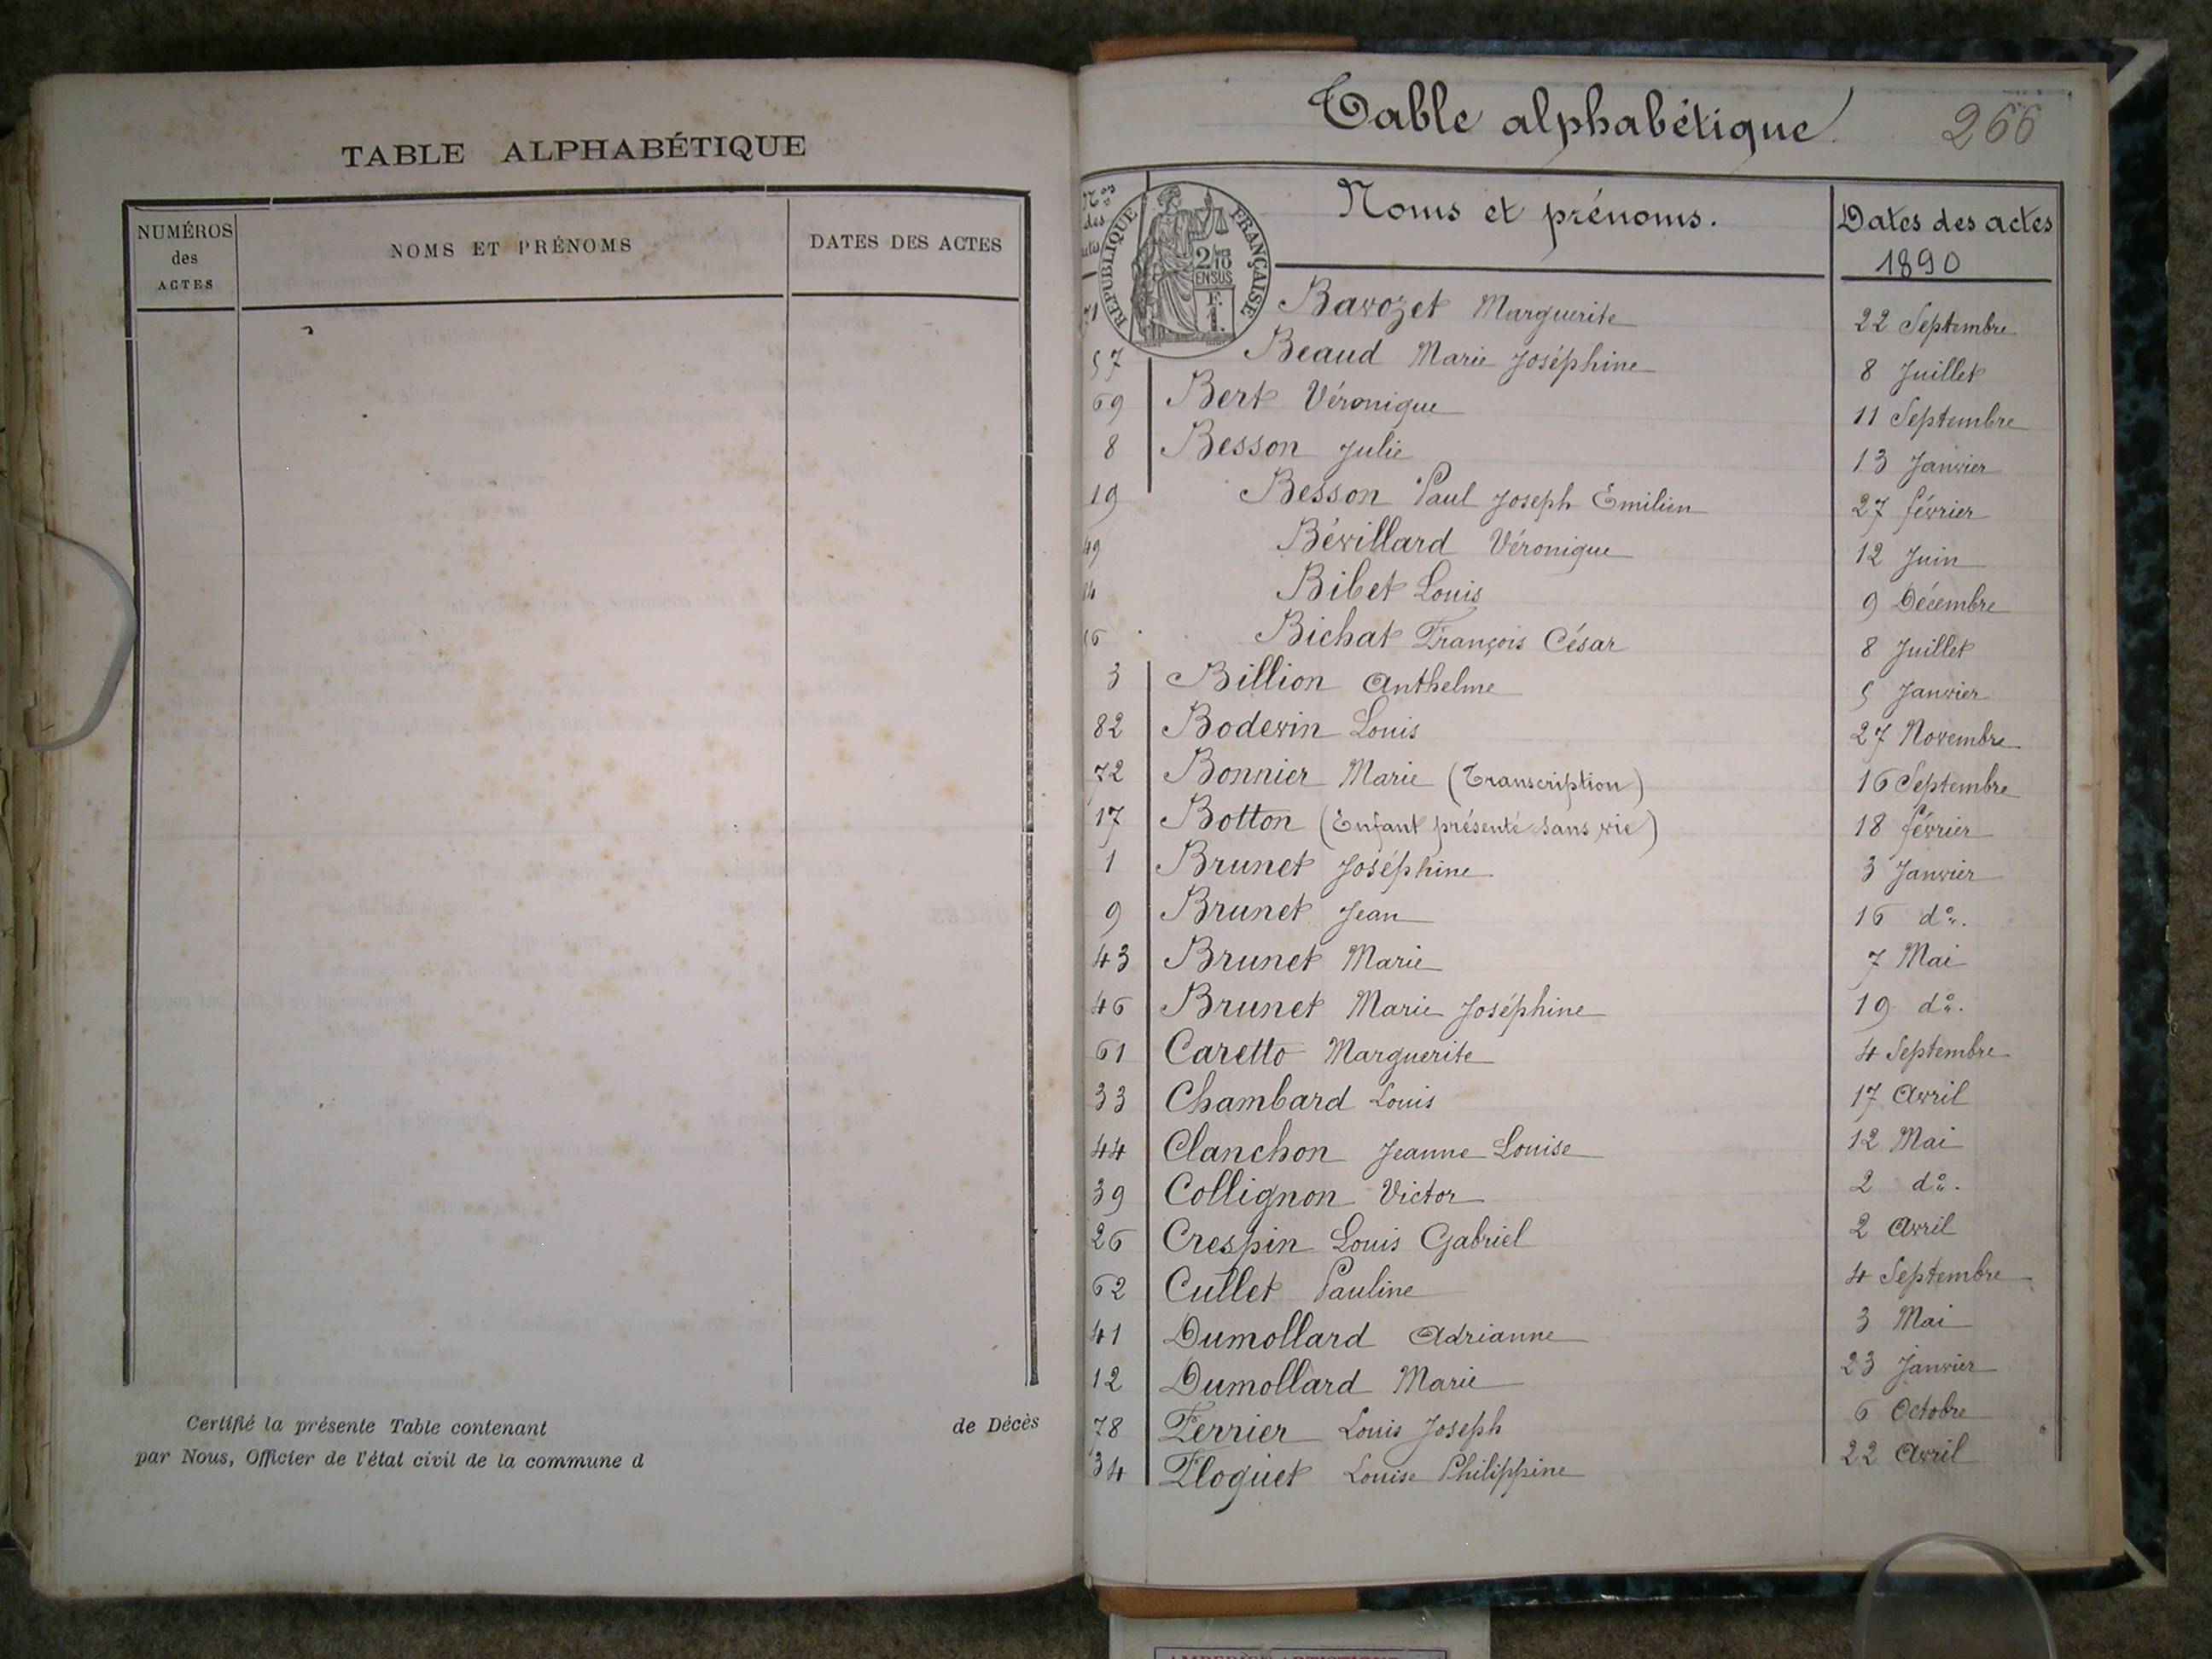 TABLE ALPHABÉTIQUE
NUMÉROS
des
ACTES
NOMS ET PRÉNOMS
DATES DES ACTES
Certifié la présente Table contenant de Décès
par Nous, Officier de l'état civil de la commune d
Table alphabétique.
266
Nos
des
Noms et prénoms.
Dates des actes
1890
RÉPUBLIQUE FRANÇAISE
2/10
EN SUS
F.
1.
71 Bavozet Marguerite 22 Septembre
57 Beaud Marie Joséphine 8 Juillet
69 Bert Véronique 11 Septembre
8 Besson Julie 13 Janvier
19 Besson Paul Joseph Emilien 27 février
49 Bévillard Véronique 12 Juin
Bibet Louis 9 Décembre
Bichat François César 8 Juillet
3 Billion Anthelme 5 Janvier
82 Bodevin Louis 27 Novembre
72 Bonnier Marie (Transcription) 16 Septembre
17 Botton (Enfant présenté sans vie) 18 février
1 Brunet Joséphine 3 Janvier
9 Brunet Jean 16 do.
43 Brunet Marie 7 Mai
46 Brunet Marie Joséphine 19 do.
61 Caretto Marguerite 4 Septembre
33 Chambard Louis 17 Avril
44 Clanchon Jeanne Louise 12 Mai
39 Collignon Victor 2 do.
26 Crespin Louis Gabriel 2 Avril
62 Cullet Pauline 4 Septembre
41 Dumollard Adrianne 3 Mai
12 Dumollard Marie 23 Janvier
78 Ferrier Louis Joseph 6 Octobre
34 Floquet Louise Philippine 22 Avril